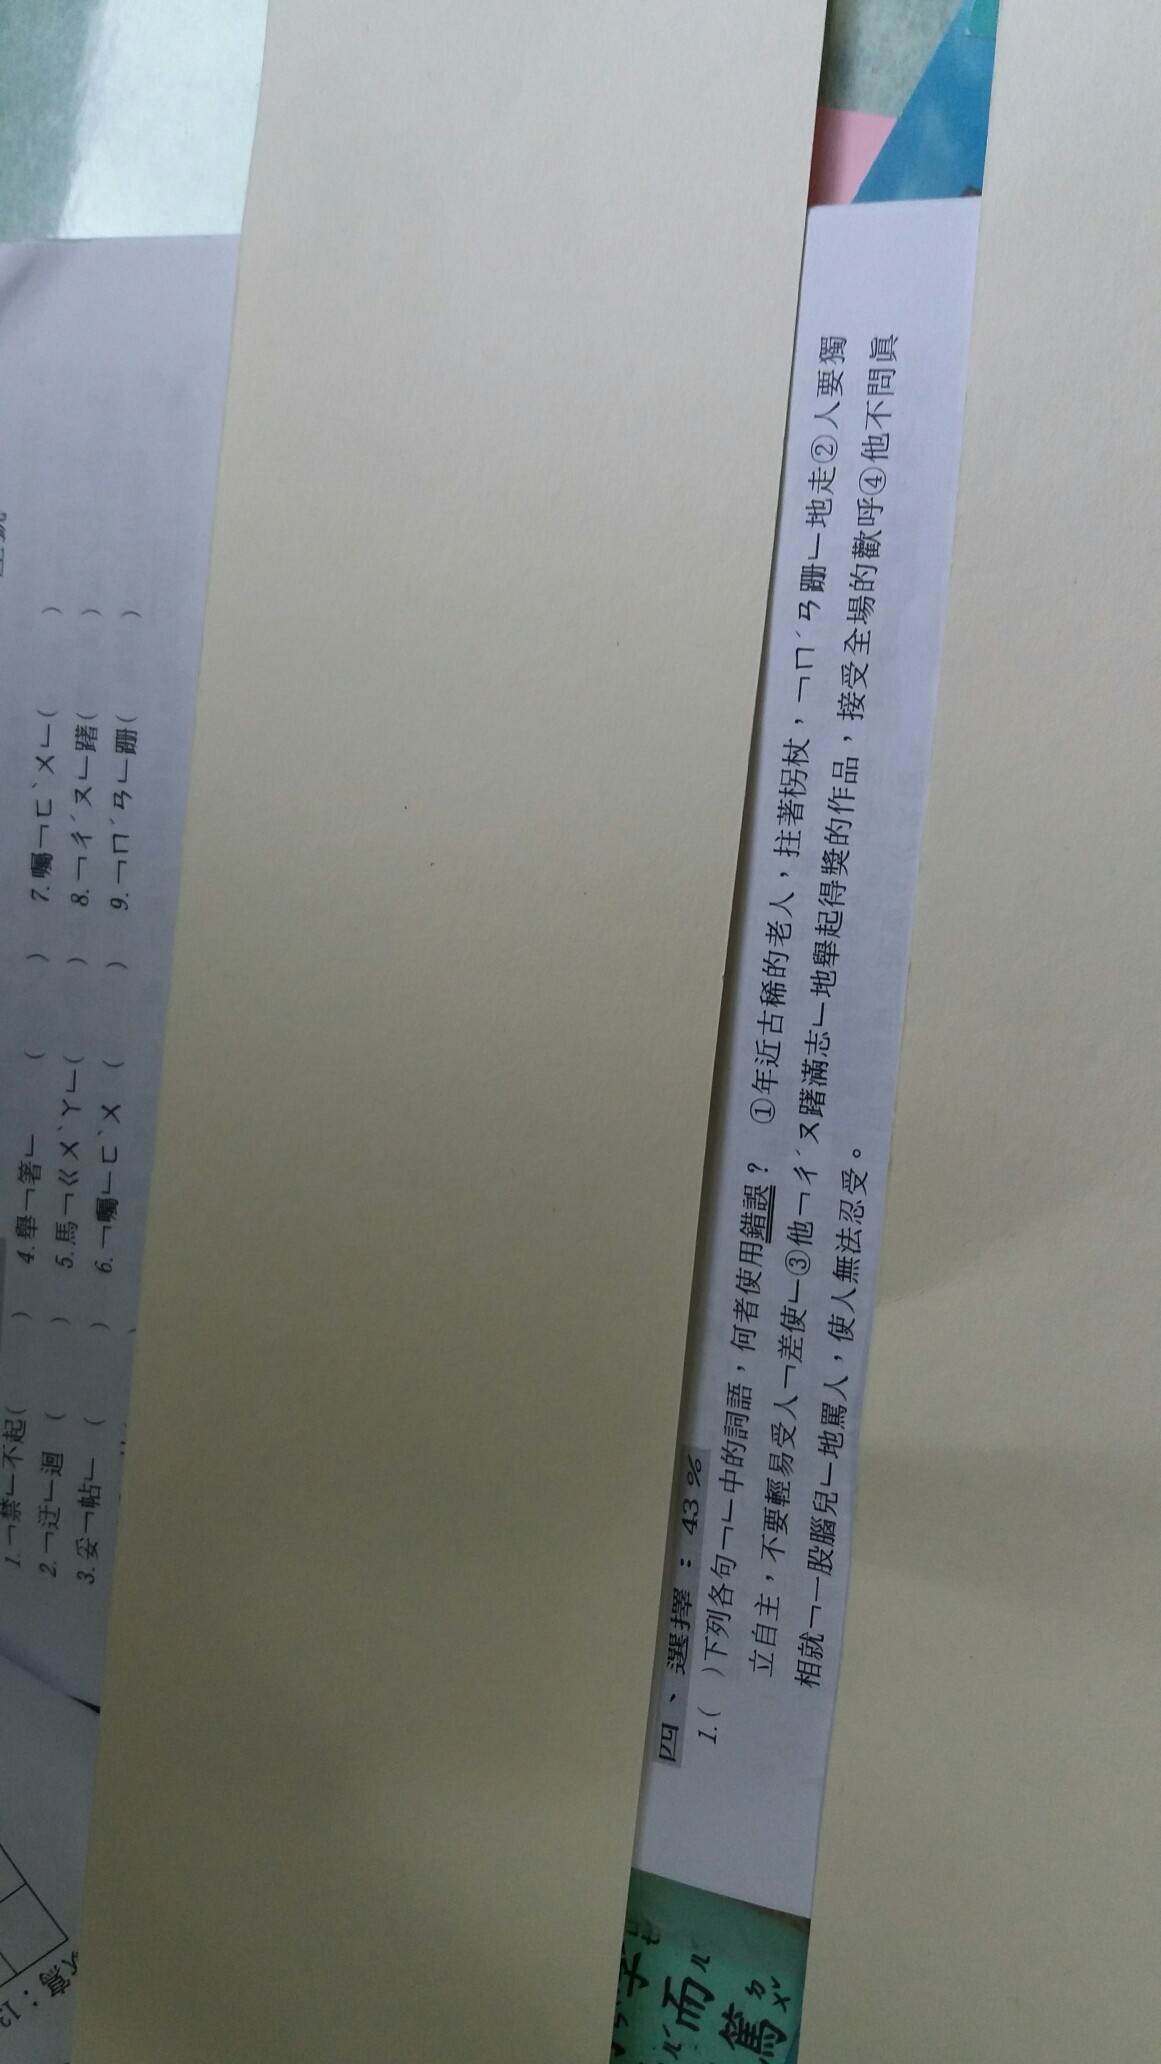 1.「禁」不起(　　)
2.「迂」迴　(　　)
3.妥「帖」　(　　)
4.舉「箸」　(　　)
5.馬「ㄍㄨˋㄚ」(　　)
6.「囑」ㄈˋㄨ　(　　)
7.囑「ㄈˋㄨ」(　　)
8.「ㄔˊㄡ」躇(　　)
9.「ㄇˊㄢ」跚(　　)
四、選擇：43%
1.(　)下列各句「」中的詞語，何者使用錯誤？　①年近古稀的老人，拄著柺杖，「ㄇˊㄢ跚」地走②人要獨
立自主，不要輕易受人「差使」③他「ㄔˊㄡ躇滿志」地舉起得獎的作品，接受全場的歡呼④他不問眞
相就「一股腦兒」地罵人，使人無法忍受。
而ㄦˊ
篤ㄉㄨˇ